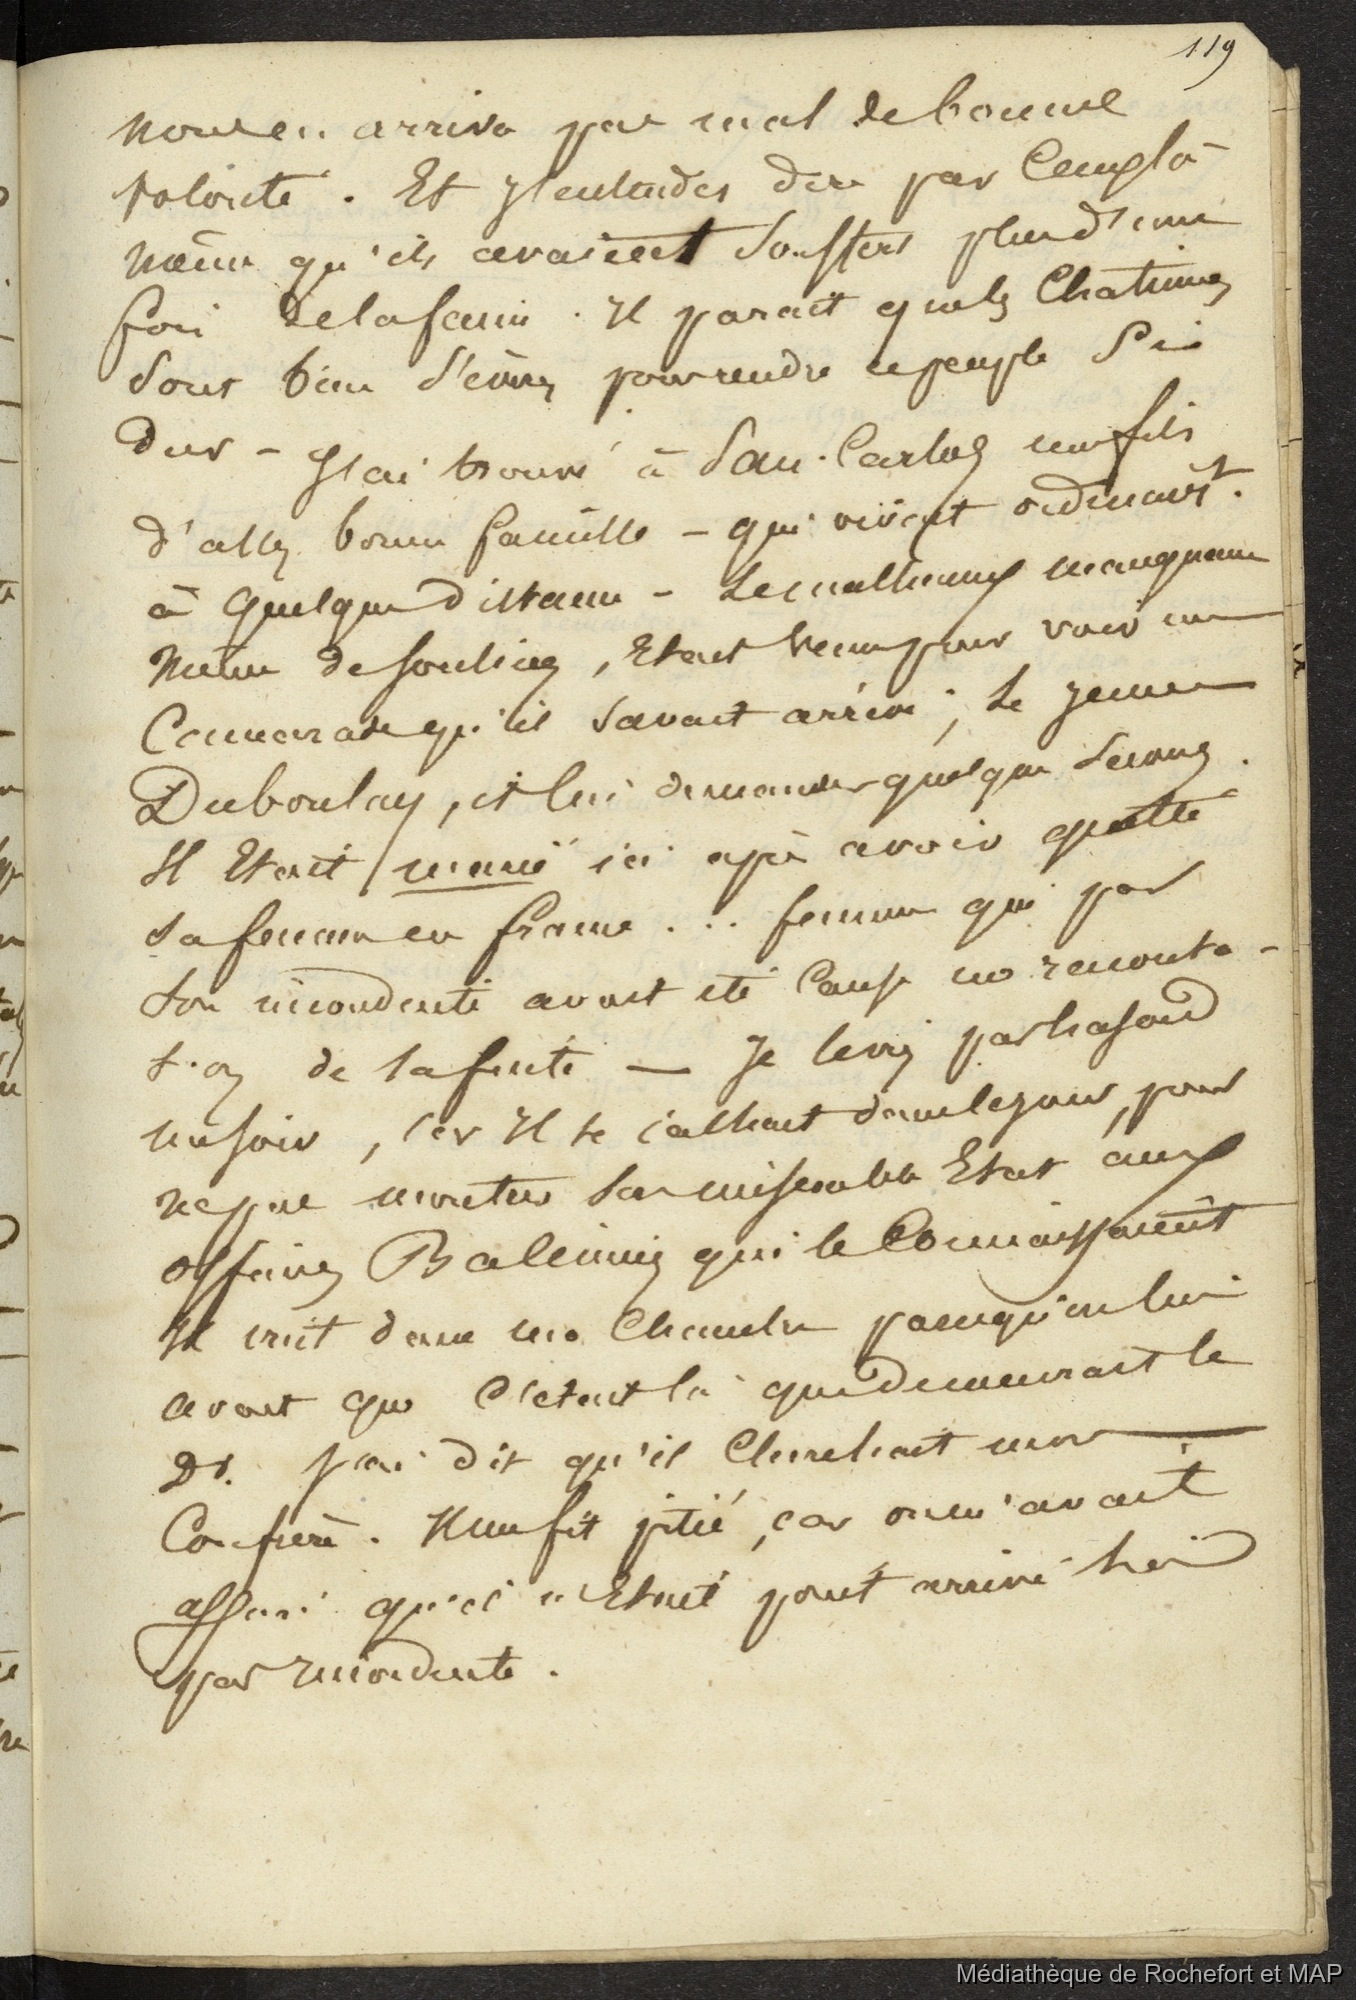 119
nous en arriva pas mal de bonne
volonté. Et j'entendis dire par l'emplo-
même qu'ils avaient souffert plus d'une
fois de la faim. Il parait que les Chatimes
sont bien sévères pour rendre ce peuple si
dur - J'ai trouvé à San-Carlos un fils
d'assez bonne famille - qui vivait ordinairt.
à quelque distance - Le malheureux manquant
même de souliers, Etait venu pour voir un
Camarade qu'il savait arrivé, le jeune
Duboulay, et lui demander quelque secours.
Il Etait marié ici après avoir quitté
sa femme en france ... femme qui par
son inconduite avait été cause
de sa fuite — Je le vis par hasard
un soir, car Il se cachait dans le jour, pour
ne pas montrer son misérable Etat aux
officiers Baleiniers qui le Connaissaient
Il vint dans ma Chambre parcequ'on lui
avait que c'était là que demeurait le
Dr. j'ai dit qu'il Cherchait mon
Confrère. Il me fit pitié, car on m'avait
assuré qu'il n'Etait point arrivé là
par inconduite.
Médiathèque de Rochefort et MAP